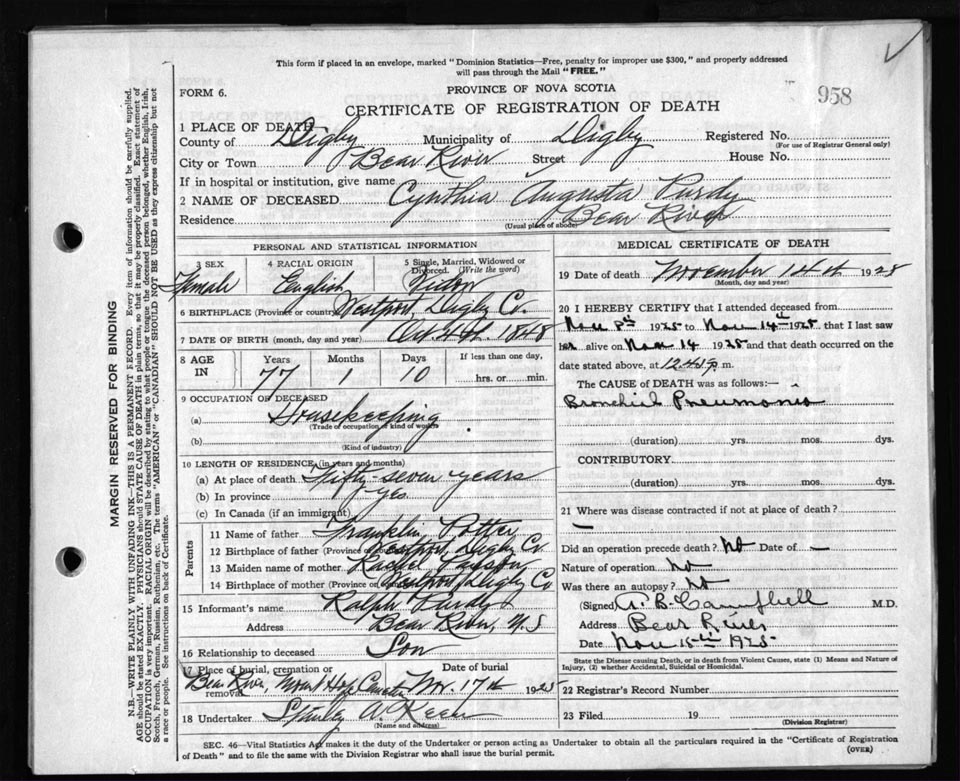 This form if placed in an envelope, marked "Dominion Statistics—Free, penalty for improper use $300," and properly addressed
will pass through the Mail "FREE."
PROVINCE OF NOVA SCOTIA
FORM 6.
958
CERTIFICATE OF REGISTRATION OF DEATH
1 PLACE OF DEATH
County of Digby Municipality of Digby Registered No.
(For use of Registrar General only)
City or Town Bear River Street House No.
If in hospital or institution, give name
2 NAME OF DECEASED Cynthia Augusta Purdy
Residence Bear River
(Usual place of abode)
PERSONAL AND STATISTICAL INFORMATION
3 SEX
Female
4 RACIAL ORIGIN
English
5 Single, Married, Widowed or
Divorced. (Write the word)
Widow
6 BIRTHPLACE (Province or country) Westport, Digby Co.
7 DATE OF BIRTH (month, day and year) Oct. 4th 1848
8 AGE
IN
Years Months Days If less than one day,
77 1 10 hrs. or min.
9 OCCUPATION OF DECEASED
(a) Housekeeping
(Trade of occupation or kind of work)
(b)
(Kind of industry)
10 LENGTH OF RESIDENCE (in years and months)
(a) At place of death Fifty-seven years
(b) In province yes
(c) In Canada (if an immigrant)
Parents
11 Name of father Franklin Potter
12 Birthplace of father (Province or country) Westport, Digby Co
13 Maiden name of mother Rachel
14 Birthplace of mother (Province or country) Westport Digby Co
15 Informant's name Ralph Purdy
Address Bear River, N.S
16 Relationship to deceased Son
17 Place of burial, cremation or
removal
Bear River, Mount Hope
Date of burial
Nov. 17th 1925
18 Undertaker Stanley W.
(Name and address)
MEDICAL CERTIFICATE OF DEATH
19 Date of death November 14th 1925
(Month, day and year)
20 I HEREBY CERTIFY that I attended deceased from
Nov 8th 1925 to Nov 14th 1925 that I last saw
her alive on Nov 14 1925 and that death occurred on the
date stated above, at p. m.
The CAUSE of DEATH was as follows:—
Bronchial Pneumonia
(duration) yrs. mos. dys.
CONTRIBUTORY.
(duration) yrs. mos. dys.
21 Where was disease contracted if not at place of death?
—
Did an operation precede death? No Date of —
Nature of operation No
Was there an autopsy? No
(Signed) A. B. Campbell M.D.
Address Bear River
Date Nov 15th 1925
State the Disease causing Death, or in death from Violent Causes, state (1) Means and Nature of
Injury, (2) whether Accidental, Suicidal or Homicidal.
22 Registrar's Record Number
23 Filed 19
(Division Registrar)
SEC. 46—Vital Statistics Act makes it the duty of the Undertaker or person acting as Undertaker to obtain all the particulars required in the "Certificate of Registration
of Death" and to file the same with the Division Registrar who shall issue the burial permit.
(OVER)
MARGIN RESERVED FOR BINDING
N.B.—WRITE PLAINLY WITH UNFADING INK—THIS IS A PERMANENT RECORD. Every item of information should be carefully supplied.
AGE should be stated EXACTLY. PHYSICIANS should STATE CAUSE OF DEATH in plain terms, so that it may be properly classified. Exact statement of
OCCUPATION is very important. RACIAL ORIGIN will be described by stating to what people or tongue the deceased person belonged, whether English, Irish,
Scotch, French, German, Russian, Ruthenian, etc. The terms "AMERICAN" or "CANADIAN" SHOULD NOT BE USED as they express citizenship but not
a race or people. See instructions on back of Certificate.